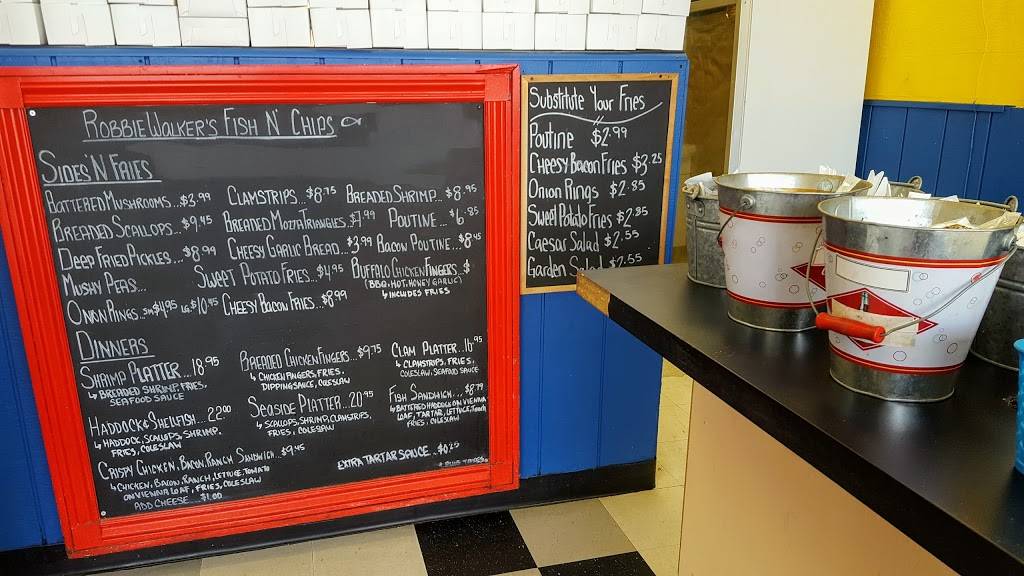 ROBBIE WALKER'S FISH N' CHIPS
SIDES 'N FRIES
BATTERED MUSHROOMS...$3.99
CLAMSTRIPS..$8.75
BREADED SHRIMP..$8.95
BREADED SCALLOPS..$9.45
BREADED MOZZA TRIANGLES..$7.99
POUTINE...$6.85
DEEP FRIED PICKLES...$8.99
CHEESY GARLIC BREAD..$3.99
BACON POUTINE..$8.45
MUSHY PEAS...
SWEET POTATO FRIES..$4.95
BUFFALO CHICKEN FINGERS..$
(BBQ, HOT, HONEY GARLIC)
↳ INCLUDES FRIES
ONION RINGS..SM $4.95 LG. $10.95
CHEESY BACON FRIES..$8.99
DINNERS
SHRIMP PLATTER...18.95
↳ BREADED SHRIMP, FRIES,
SEAFOOD SAUCE
BREADED CHICKEN FINGERS..$9.75
↳ CHICKEN FINGERS, FRIES,
DIPPING SAUCE, COLESLAW
CLAM PLATTER..16.95
↳ CLAMSTRIPS, FRIES,
COLESLAW, SEAFOOD SAUCE
HADDOCK & SHELLFISH...22.00
↳ HADDOCK, SCALLOPS, SHRIMP,
FRIES, COLESLAW
SEASIDE PLATTER..20.95
↳ SCALLOPS, SHRIMP, CLAMSTRIPS,
FRIES, COLESLAW
FISH SANDWICH...$8.79
↳ BATTERED HADDOCK ON VIENNA
LOAF, TARTAR, LETTUCE, TOMATO
FRIES, COLESLAW
CRISPY CHICKEN, BACON, RANCH SANDWICH..$9.45
↳ CHICKEN, BACON, RANCH, LETTUCE, TOMATO
ON VIENNA LOAF, FRIES, COLESLAW
ADD CHEESE $1.00
EXTRA TARTAR SAUCE..$0.25
Substitute Your Fries
Poutine $2.99
Cheesy Bacon Fries $3.25
Onion Rings $2.85
Sweet Potato Fries $2.85
Caesar Salad $2.55
Garden Salad $2.55